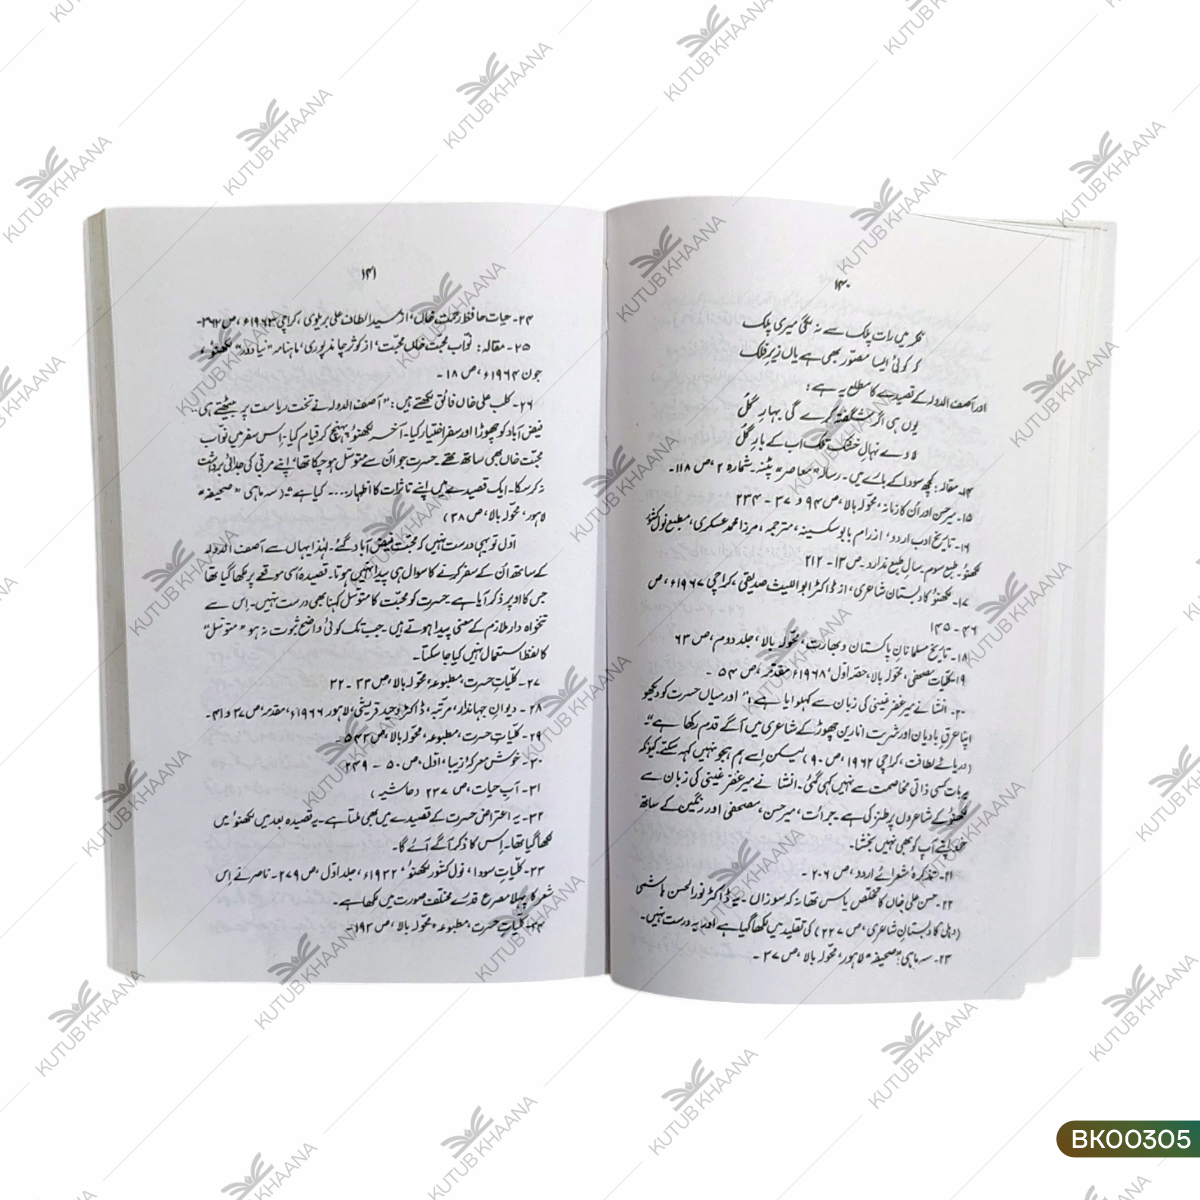 ۱۴۰
فکر میں رات پلک سے نہ لگی میری پلک
کہ کوئی ایسا مصوّر بھی ہے یاں زیرِ فلک
اور آصف الدولہ کے قصیدے کا مطلع یہ ہے :
یوں ہی اگر شگفتہ کرے گی بہارِ گل
لاوے نہالِ خشک تلک اب کے بار گل
۱۴۔ مقالہ : کچھ سودا کے بارے میں۔ رسالہ "معاصر" پٹنہ۔ شمارہ ۲ ، ص ۱۱۸۔
۱۵۔ میر حسن اور اُن کا زمانہ ، محوّلہ بالا ، ص ۹۴ و ۳۷ - ۲۳۴
۱۶۔ تاریخِ ادبِ اردو ، از رام بابو سکسینہ ، مترجمہ ، مرزا محمد عسکری ، مطبع نول کشور
لکھنؤ۔ طبع سوم۔ سالِ طبع ندارد۔ ص ۱۳ - ۲۱۲
۱۷۔ لکھنؤ کا دبستانِ شاعری ، از ڈاکٹر ابواللیث صدیقی ، کراچی ۱۹۶۷ء ، ص
۴۶ - ۱۴۵
۱۸۔ تاریخِ مسلمانانِ پاکستان و بھارت ، محوّلہ بالا ، جلد دوم ، ص ۶۳
۱۹۔ کلیاتِ مصحفی ، محوّلہ بالا ، حصّہ اوّل ۱۹۶۸ء مقدمہ ، ص ۵۴ ۔
۲۰۔ انشا نے میر غفر غینی کی زبان سے کہلوایا ہے : "اور میاں حسرت کو دیکھو
اپنا عرقِ بادیان اور شربتِ انارین چھوڑ کے شاعری میں آگے قدم رکھا ہے"
(دریائے لطافت ، کراچی ۱۹۶۲ ، ص ۹۰) لیکن اِسے ہم ہجو نہیں کہہ سکتے۔ کیونکہ
یہ بات کسی ذاتی مخاصمت سے نہیں کہی گئی۔ انشا نے میر غفر غینی کی زبان سے
لکھنؤ کے شاعروں پر طنز کی ہے۔ جرأت ، میر حسن ، مصحفی اور رنگین کے ساتھ
خود اپنے آپ کو بھی نہیں بخشا۔
۲۱۔ تذکرۂ شعرائے اردو ، ص ۲۰۶ ۔
۲۲۔ حسن علی خاں کا تخلص یاس تھا نہ کہ سوزاں ۔ یہ ڈاکٹر نور الحسن ہاشمی
(دہلی کا دبستانِ شاعری ، ص ۲۲۷) کی تقلید میں لکھا گیا ہے اور یہ درست نہیں۔
۲۳۔ سہ ماہی "صحیفہ" لاہور ، محوّلہ بالا ، ص ۳۷ ۔
۱۴۱
۲۴۔ حیات حافظ رحمت خاں ، از سید الطاف علی بریلوی ، کراچی ۱۹۶۳ء ، ص ۳۶۲۔
۲۵۔ مقالہ : نوّاب محبّت خاں محبّت ، از کوثر چاندپوری ، ماہنامہ "نیا دور" لکھنؤ ،
جون ۱۹۶۴ء ، ص ۱۸ ۔
۲۶۔ کلب علی خاں فائق لکھتے ہیں : "آصف الدولہ نے تخت ریاست پر بیٹھتے ہی
فیض آباد کو چھوڑا اور سفر اختیار کیا۔ آخر لکھنؤ پہنچ کر قیام کیا۔ اِس سفر میں نواب
محبّت خاں بھی ساتھ تھے۔ حسرت جو اُن سے متوسل ہو چکا تھا ، اپنے مربّی کی جدائی برداشت
نہ کر سکا۔ ایک قصیدے میں اپنے تاثرات کا اظہار .... کیا ہے" (سہ ماہی "صحیفہ"
لاہور ، محوّلہ بالا ، ص ۳۸)
اوّل تو یہی درست نہیں کہ محبّت فیض آباد گئے۔ لہٰذا یہاں سے آصف الدولہ
کے ساتھ اُن کے سفر کرنے کا سوال ہی پیدا نہیں ہوتا۔ قصیدہ اُسی موقعے پر لکھا گیا تھا
جس کا اوپر ذکر آیا ہے۔ حسرت کو محبّت کا متوسل کہنا بھی درست نہیں۔ اِس سے
تنخواہ دار ملازم کے معنی پیدا ہوتے ہیں۔ جب تک کوئی واضح ثبوت نہ ہو "متوسل"
کا لفظ استعمال نہیں کیا جا سکتا۔
۲۷۔ کلیاتِ حسرت ، مطبوعہ ، محوّلہ بالا ، ص ۳۳ - ۳۲
۲۸ ۔ دیوانِ جہاندار ، مرتبہ ، ڈاکٹر وحید قریشی ، لاہور ۱۹۶۶ء ، مقدمہ ، ص ۳۷ و ۴۱۔
۲۹۔ کلیاتِ حسرت ، مطبوعہ ، محوّلہ بالا ، ص ۵۴۲۔
۳۰۔ خوش معرکۂ زیبا ، اوّل ، ص ۵۰ - ۲۴۹
۳۱۔ آبِ حیات ، ص ۲۲۷ (حاشیہ)
۳۲۔ یہ اعتراض حسرت کے قصیدے میں بھی ملتا ہے۔ یہ قصیدہ بعد میں لکھنؤ میں
لکھا گیا تھا۔ اِس کا ذکر آگے آئے گا۔
۳۳۔ کلیاتِ سودا ، نول کشور لکھنؤ ، ۱۹۳۲ء ، جلد اوّل ، ص ۲۷۹۔ ناصر نے اِس
شعر کا پہلا مصرع قدرے مختلف صورت میں لکھا ہے۔
۳۴۔ کلیاتِ حسرت ، مطبوعہ ، محوّلہ بالا ، ص ۱۹۳۔
KUTUB KHAANA
BK00305